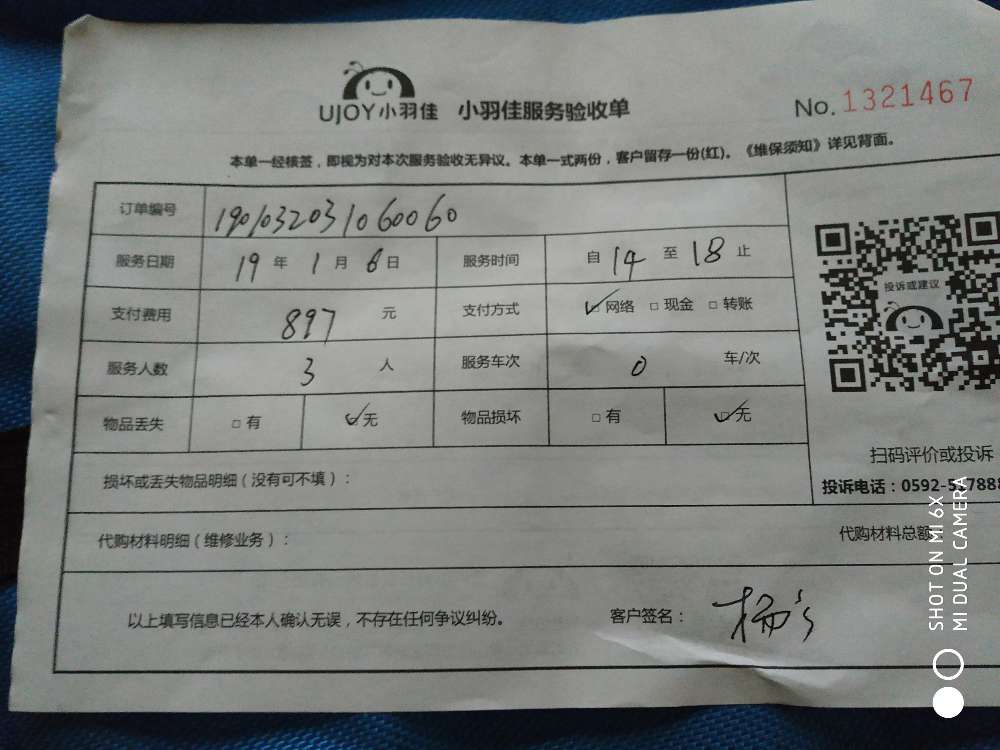 UJOY小羽佳 小羽佳服务验收单 No. 1321467
本单一经核签，即视为对本次服务验收无异议。本单一式两份，客户留存一份(红)。《维保须知》详见背面。
订单编号 1901032031060060
服务日期 19 年 1 月 6 日 服务时间 自 14 至 18 止
支付费用 897 元 支付方式 ☑网络 □现金 □转账
服务人数 3 人 服务车次 0 车/次
物品丢失 □有 ☑无 物品损坏 □有 ☑无
投诉或建议
扫码评价或投诉
损坏或丢失物品明细（没有可不填）：
投诉电话：0592-517888
代购材料明细（维修业务）： 代购材料总额：
以上填写信息已经本人确认无误，不存在任何争议纠纷。 客户签名： 杨
SHOT ON MI 6X
MI DUAL CAMERA